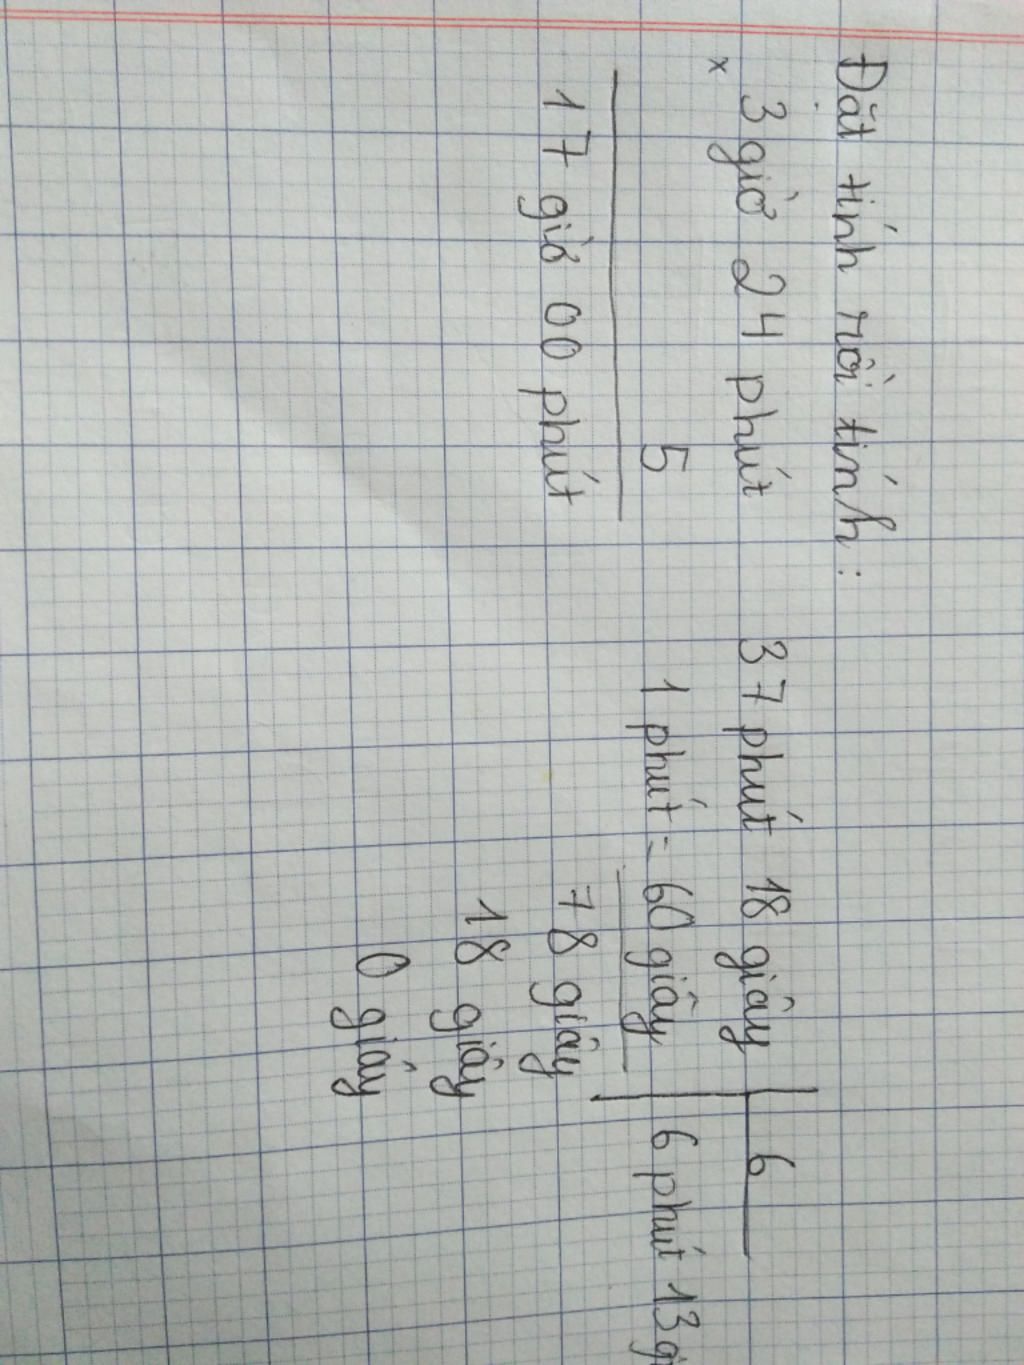 Đặt tính rồi tính:
x 3 giờ 24 phút
5
17 giờ 00 phút
37 phút 18 giây 6
1 phút = 60 giây 6 phút 13 gi
78 giây
18 giây
0 giây